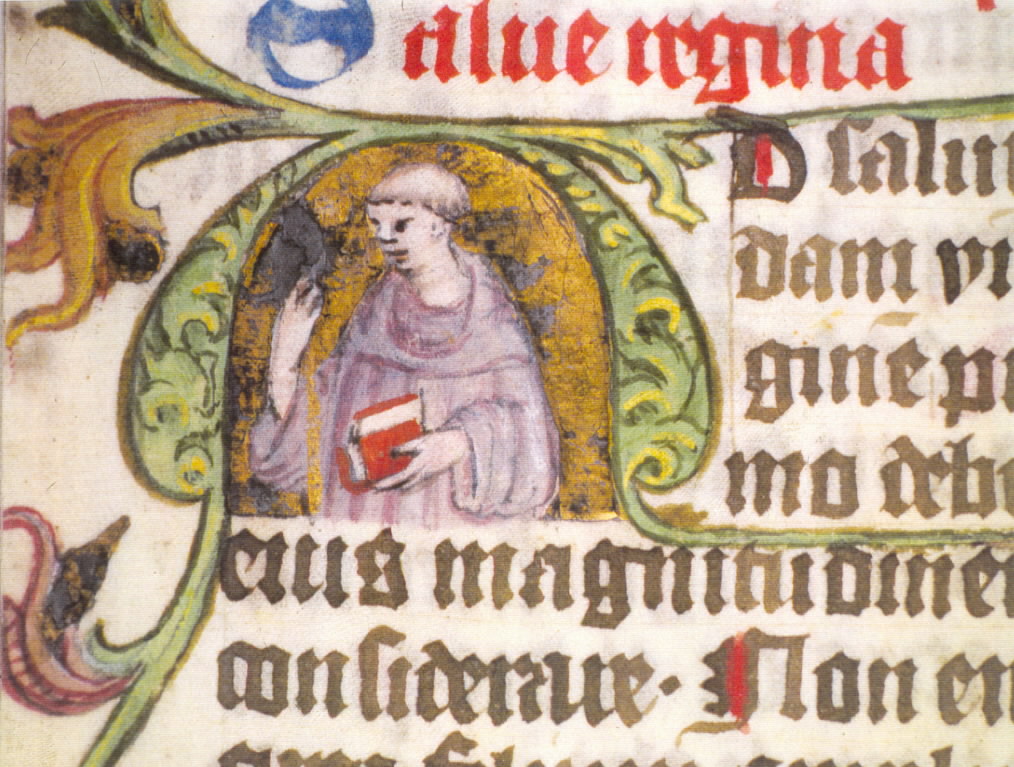 Salue regina
AD salu
dam vi
ginē p
mo debe
eius magnitudinem
considerare. Non en